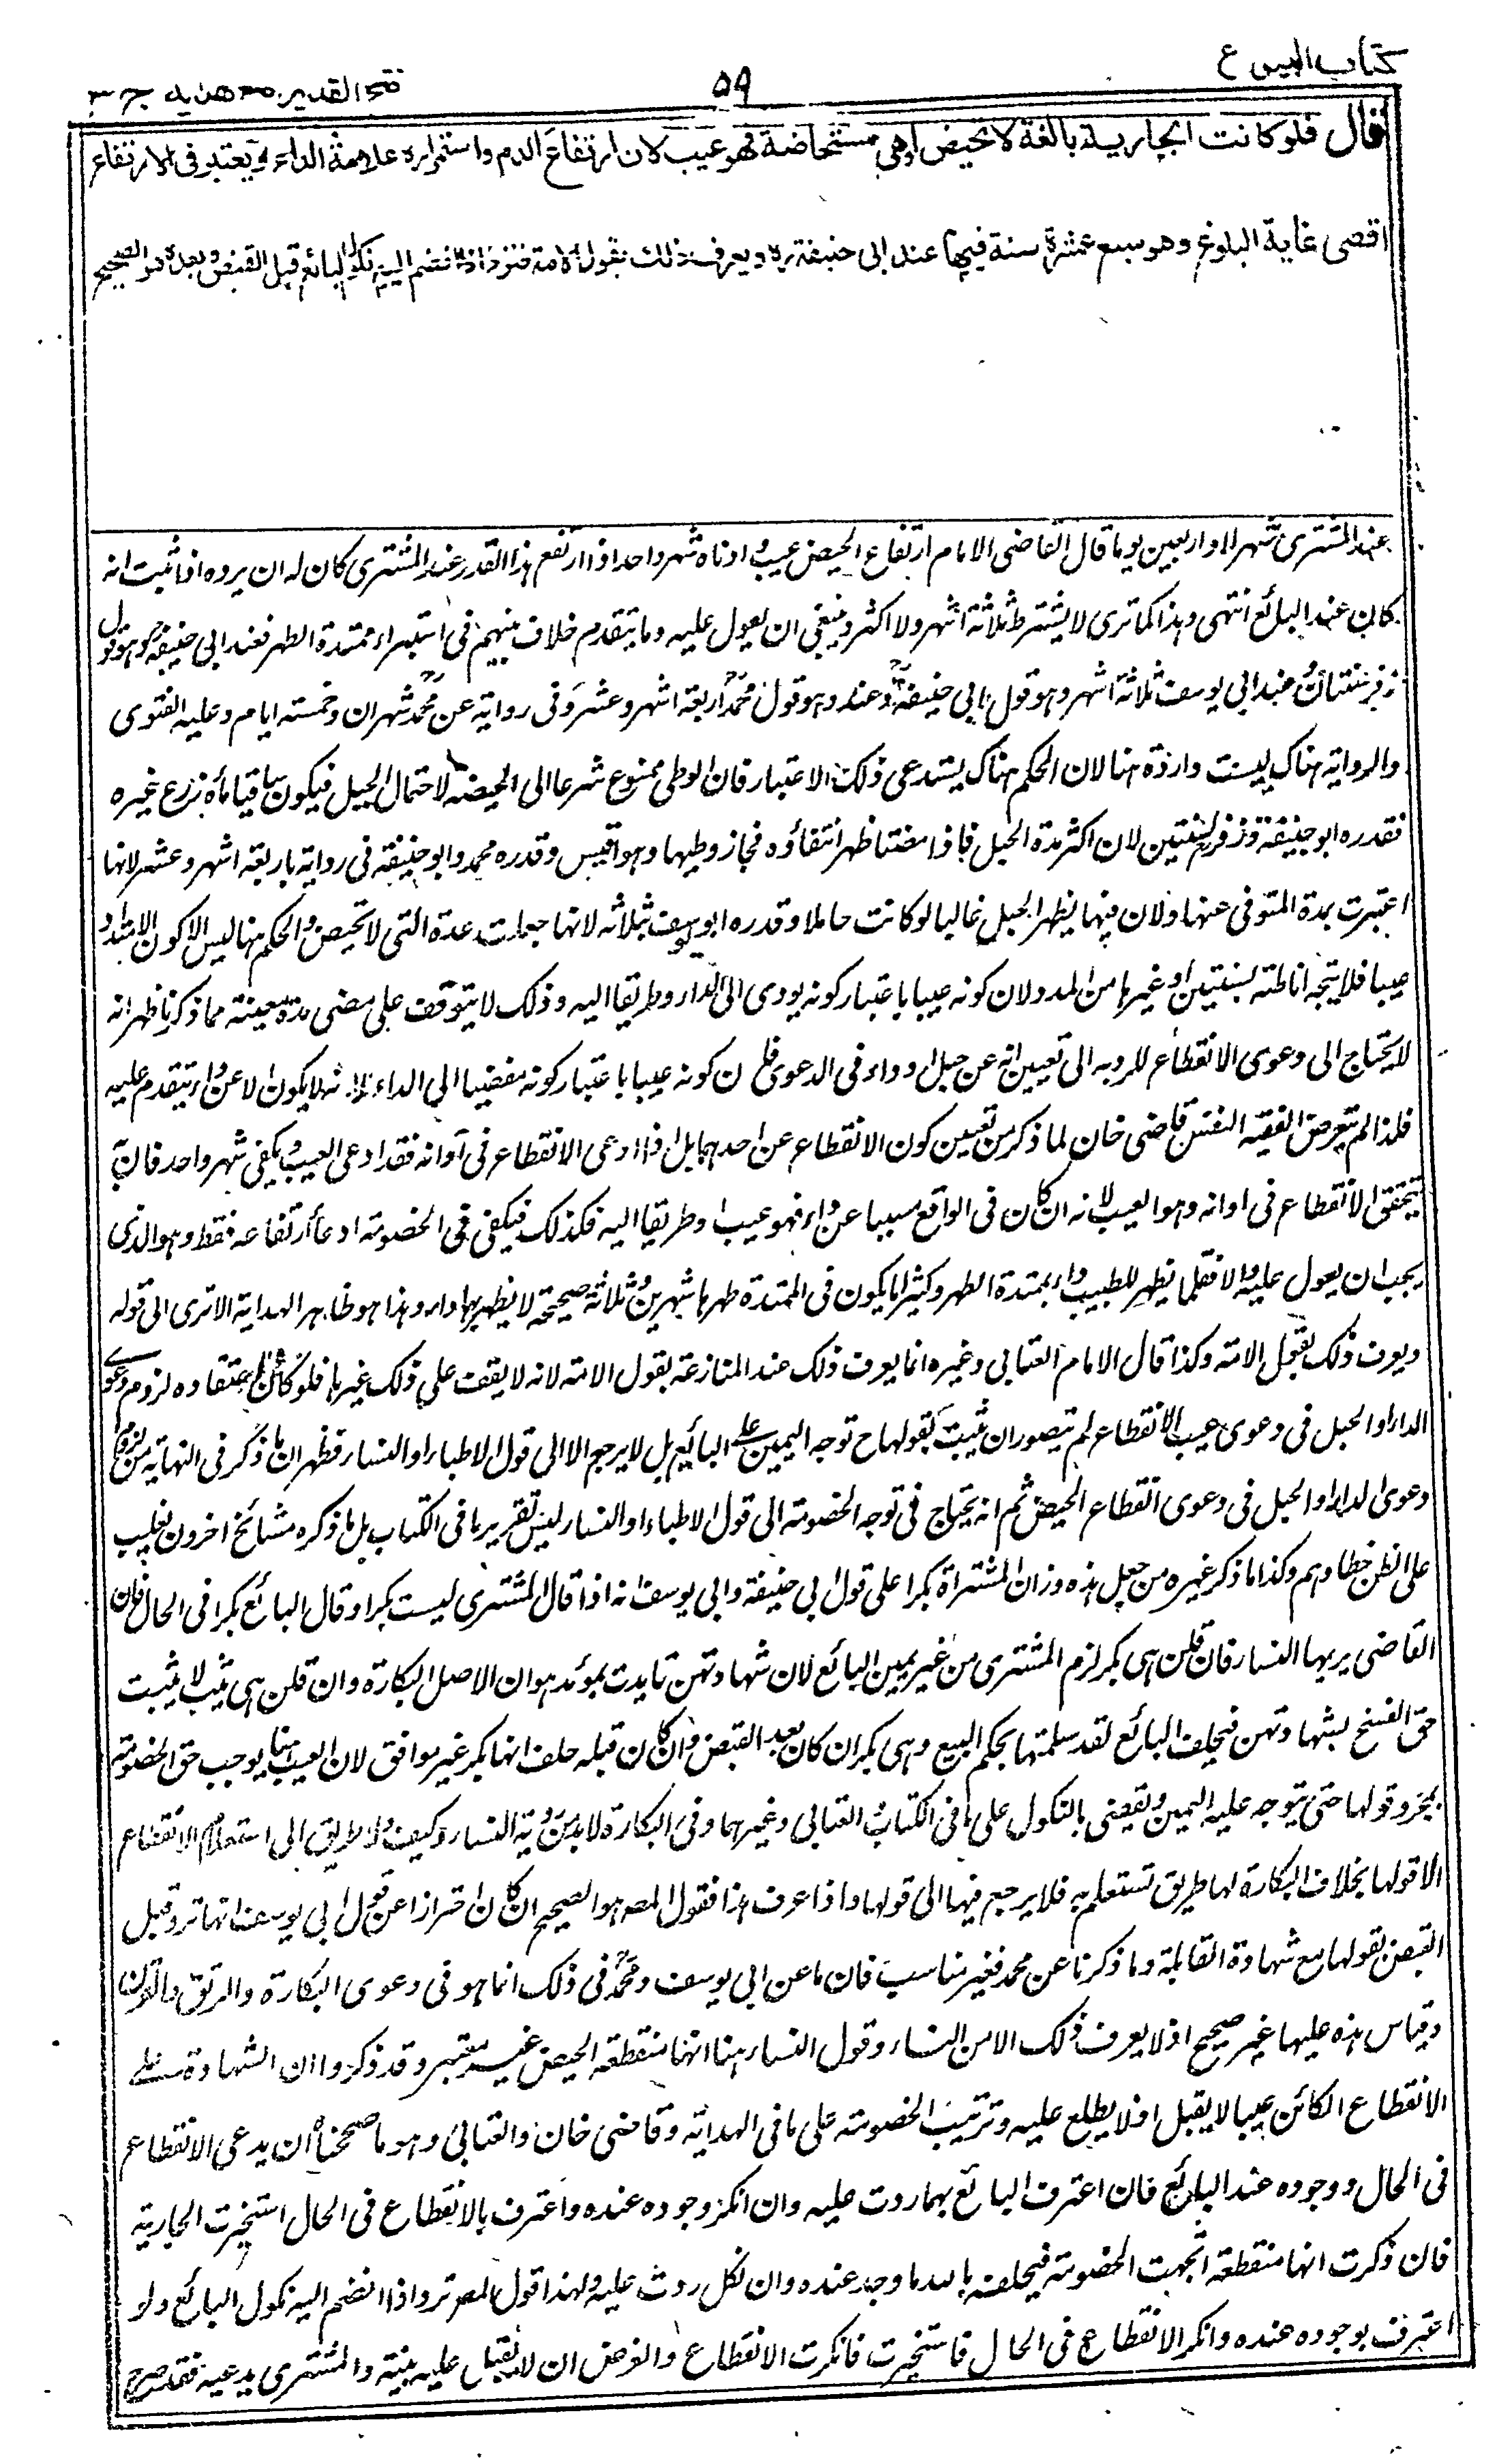 كتاب البيوع
٥٩
فتح القدير مع هدايه ج ٣
قال فلو كانت الجارية بالغة لا تحيض او هى مستحاضة فهو عيب لان ارتفاع الدم واستمراره علامة الداء ويعتبر فى الارتفاع
اقصى غاية البلوغ وهو سبع عشرة سنة فيها عند ابى حنيفة ره ويعرف ذلك بقول الامة فترد اذا انضم اليه نكول البائع قبل القبض وبعده هو الصحيح
عند المشترى شهرا او اربعين يوما قال القاضى الامام ارتفاع الحيض عيب وادناه شهر واحد اذا ارتفع هذا القدر عند المشترى كان له ان يرده اذا ثبت انه
كان عند البائع انتهى وهذا كما ترى لا يشترط ثلاثة اشهر ولا اكثر وينبغى ان يعول عليه وما يتقدم خلاف بينهم فى استبراء ممتدة الطهر فعند ابى حنيفة وهو قول
زفر سنتان وعند ابى يوسف ثلاثة اشهر وهو قول ابى حنيفة وعنده وهو قول محمد اربعة اشهر وعشر وفى رواية عن محمد شهران وخمسة ايام وعليه الفتوى
والرواية هناك ليست واردة هنا لان الحكم هناك يستدعى ذلك الاعتبار فان الوطى ممنوع شرعا الى الحيضة لاحتمال الحبل فيكون ساقيا ماءه زرع غيره
فقدره ابو حنيفة وزفر بسنتين لان اكثر مدة الحبل فاذا مضتا ظهر انتفاؤه فجاز وطيها وهو اقيس وقدره محمد وابو حنيفة فى رواية باربعة اشهر وعشر لانها
اعتبرت بمدة المتوفى عنها ولان فيها يظهر الحبل غالبا لو كانت حاملا وقدره ابو يوسف بثلاثة لانها جعلت عدة التى لا تحيض والحكم هنا ليس الا كون الامتداد
عيبا فلا يتجه اناطته بسنتين او غيرها من المدد لان كونه عيبا باعتبار كونه يودى الى الداء وطريقا اليه وذلك لا يتوقف على مضى مدة معينة مما ذكرنا ظهر انه
لا يحتاج الى دعوى الانقطاع للرد به الى تعيين انه عن حبل او داء فى الدعوى فلان كونه عيبا باعتبار كونه مفضيا الى الداء لا انه لا يكون الا عن داء يتقدم عليه
فلذا لم يتعرض الفقيه النفس قاضى خان لما ذكر من تعيين كون الانقطاع عن احدهما بل اذا ادعى الانقطاع فى اوانه فقد ادعى العيب ويكفى شهر واحد فان به
يتحقق الانقطاع فى اوانه وهو العيب لانه ان كان فى الواقع مسببا عن داء فهو عيب او طريقا اليه فكذلك فيكفى فى الخصومة ادعاء ارتفاعه فقط وهو الذى
يجب ان يعول عليه والا فقلما يظهر للطبيب داء بممتدة الطهر وكثيرا ما يكون فى الممتدة طهرها شهرين وثلاثة صحيحة لا يظهر بها داء وهذا هو ظاهر الهداية الا ترى الى قوله
ويعرف ذلك بقول الامة وكذا قال الامام العتابى وغيره انما يعرف ذلك عند المنازعة بقول الامة لانه لا يقف على ذلك غيرها فلو كان اعتقاده لزوم دعوى
الداء او الحبل فى دعوى عيب الانقطاع لم يتصور ان يثبت بقولها ح توجه اليمين على البائع بل لا يرجع الا الى قول الاطباء او النساء فظهر ان ما ذكر فى النهاية من لزوم
دعوى الداء او الحبل فى دعوى انقطاع الحيض ثم انه يحتاج فى توجه الخصومة الى قول الاطباء او النساء ليس تقرير ما فى الكتاب بل ما ذكره مشائخ اخرون يغلب
على الظن خطاوهم وكذا ما ذكر غيره من جعل هذه وزان المشتراة بكرا على قول ابى حنيفة وابى يوسف انه اذا قال المشترى ليست بكرا وقال البائع بكر فى الحال فان
القاضى يريها النساء فان قلن هى بكر لزم المشترى من غير يمين البائع لان شهادتهن تايدت بمؤيد هو ان الاصل البكارة وان قلن هى ثيب لا يثبت
حق الفسخ بشهادتهن فيحلف البائع لقد سلمتها بحكم البيع وهى بكر ان كان بعد القبض وان كان قبله حلف انها بكر غير موافق لان العيب هنا يوجب حق الخصومة
بمجرد قولها حتى يتوجه عليه اليمين ويقضى بالنكول على ما فى الكتاب والعتابى وغيرهما وفى البكارة لا بد من رؤية النساء وكيف ولا طريق الى استعلام الانقطاع
الا قولها بخلاف البكارة لها طريق تستعلم به فلا يرجع فيها الى قولها واذا عرف هذا فقول المصـ هو الصحيح ان كان احترازا عن قول ابى يوسف انها ترد قبل
القبض بقولها مع شهادة القابلة وما ذكرنا عن محمد فغير مناسب فان ما عن ابى يوسف ومحمد فى ذلك انما هو فى دعوى البكارة والرتق والقرن
وقياس هذه عليها غير صحيح اذ لا يعرف ذلك الا من النساء وقول النساء هنا انها منقطعة الحيض غير معتبر وقد ذكروا ان الشهادة على
الانقطاع الكائن عيبا لا يقبل اذ لا يطلع عليه وترتيب الخصومة على ما فى الهداية وقاضى خان والعتابى وهو ما صححناه ان يدعى الانقطاع
فى الحال ووجوده عند البائع فان اعترف البائع بهما ردت عليه وان انكر وجوده عنده واعترف بالانقطاع فى الحال استخبرت الجارية
فان ذكرت انها منقطعة اتجهت الخصومة فيحلف بالله ما وجد عنده وان نكل ردت عليه ولهذا قول المصـ ترد اذا انضم اليه نكول البائع ولو
اعترف بوجوده عنده وانكر الانقطاع فى الحال فاستخبرت فانكرت الانقطاع والفرض ان لا يقبل عليه بينة والمشترى يدعيه فقد صرح